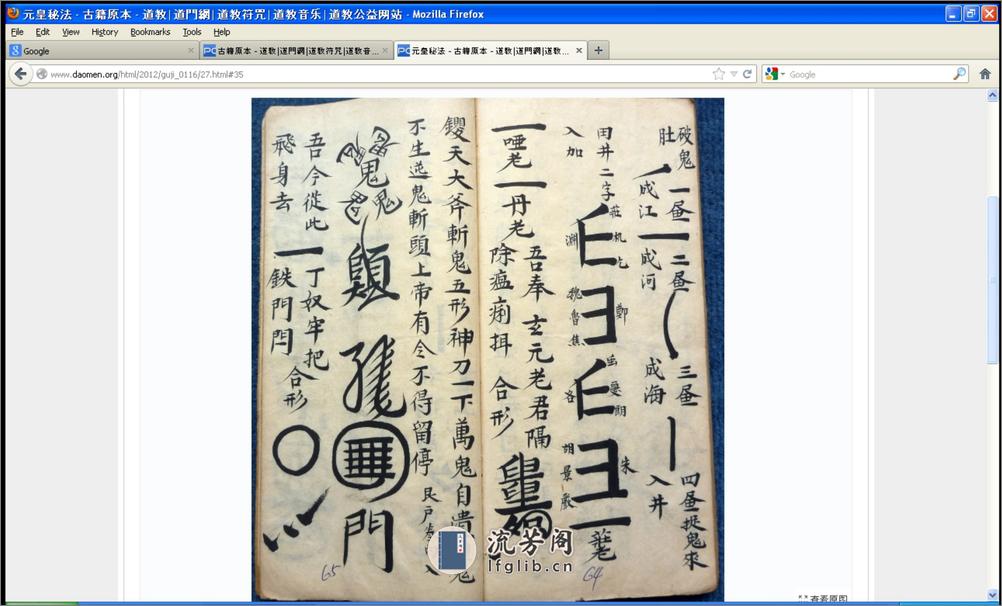 元皇秘法 - 古籍原本 - 道教|道門網|道教符咒|道教音乐|道教公益网站 - Mozilla Firefox
File Edit View History Bookmarks Tools Help
Google
古籍原本 - 道教|道門網|道教符咒|道教音...
元皇秘法 - 古籍原本 - 道教|道門網|道教...
www.daomen.org/html/2012/guji_0116/27.html#35
Google
破鬼
肚
一昼
成江
二昼
成河
三昼
成海
四昼捉鬼來
入井
田井二字
入加
莊
机
淵
魏
魯
鄭
焦
胡
景
嚴
朱
唾老
丹老
吾奉玄元老君隔
除瘟痢
合形
天大斧斬鬼五形神刀一下萬鬼自潰
不生逆鬼斬頭上帝有令不得留停
鬼
門
吾今從此
飛身去
丁奴牢把
鉄門閂
合形
65
64
流芳阁
lfglib.cn
查看原图